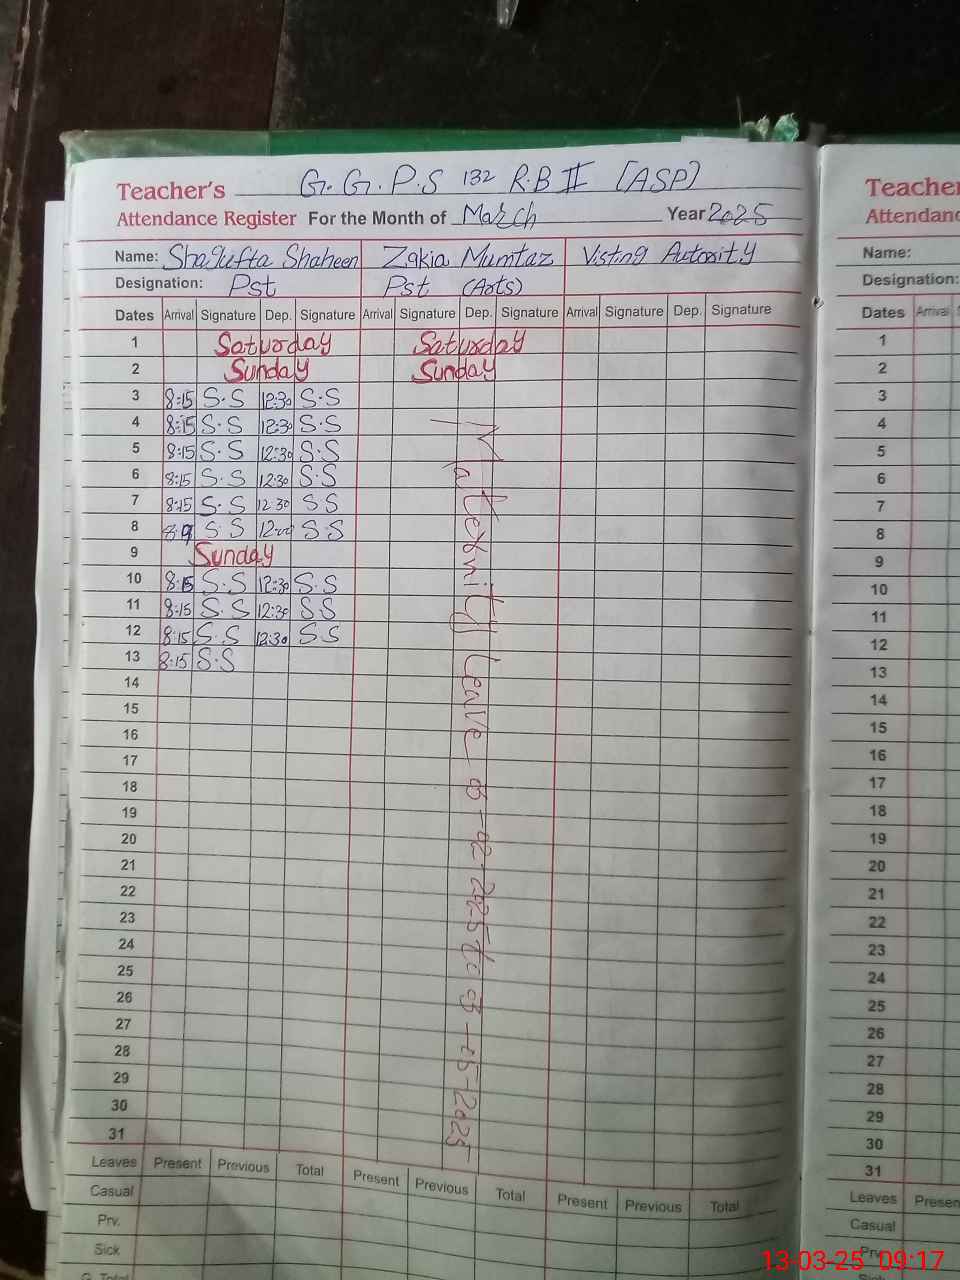 Teacher's G.G.P.S 132 R.B II (ASP)
Attendance Register For the Month of March Year 2025
Name: Shagufta Shaheen Zakia Mumtaz Visting Autority
Designation: Pst Pst (Arts)
Dates Arrival Signature Dep. Signature Arrival Signature Dep. Signature Arrival Signature Dep. Signature
1 Saturday Saturday
2 Sunday Sunday
3 8:15 S.S 12:30 S.S
4 8:15 S.S 12:30 S.S
5 8:15 S.S 12:30 S.S
6 8:15 S.S 12:30 S.S
7 8:15 S.S 12:30 S S
8 S S 12:00 S.S
9 Sunday
10 8:15 S.S 12:30 S.S
11 8:15 S.S 12:30 S.S
12 8:15 S.S 12:30 S.S
13 8:15 S.S
14
15
16
17
18
19
20
21
22
23
24
25
26
27
28
29
30
31
Maternity Leave to 2025
Leaves Present Previous Total Present Previous Total Present Previous Total
Casual
Prv.
Sick
G. Total
Teacher
Attendanc
Name:
Designation:
Dates Arrival
1
2
3
4
5
6
7
8
9
10
11
12
13
14
15
16
17
18
19
20
21
22
23
24
25
26
27
28
29
30
31
Leaves Presen
Casual
Prv.
13-03-25 09:17